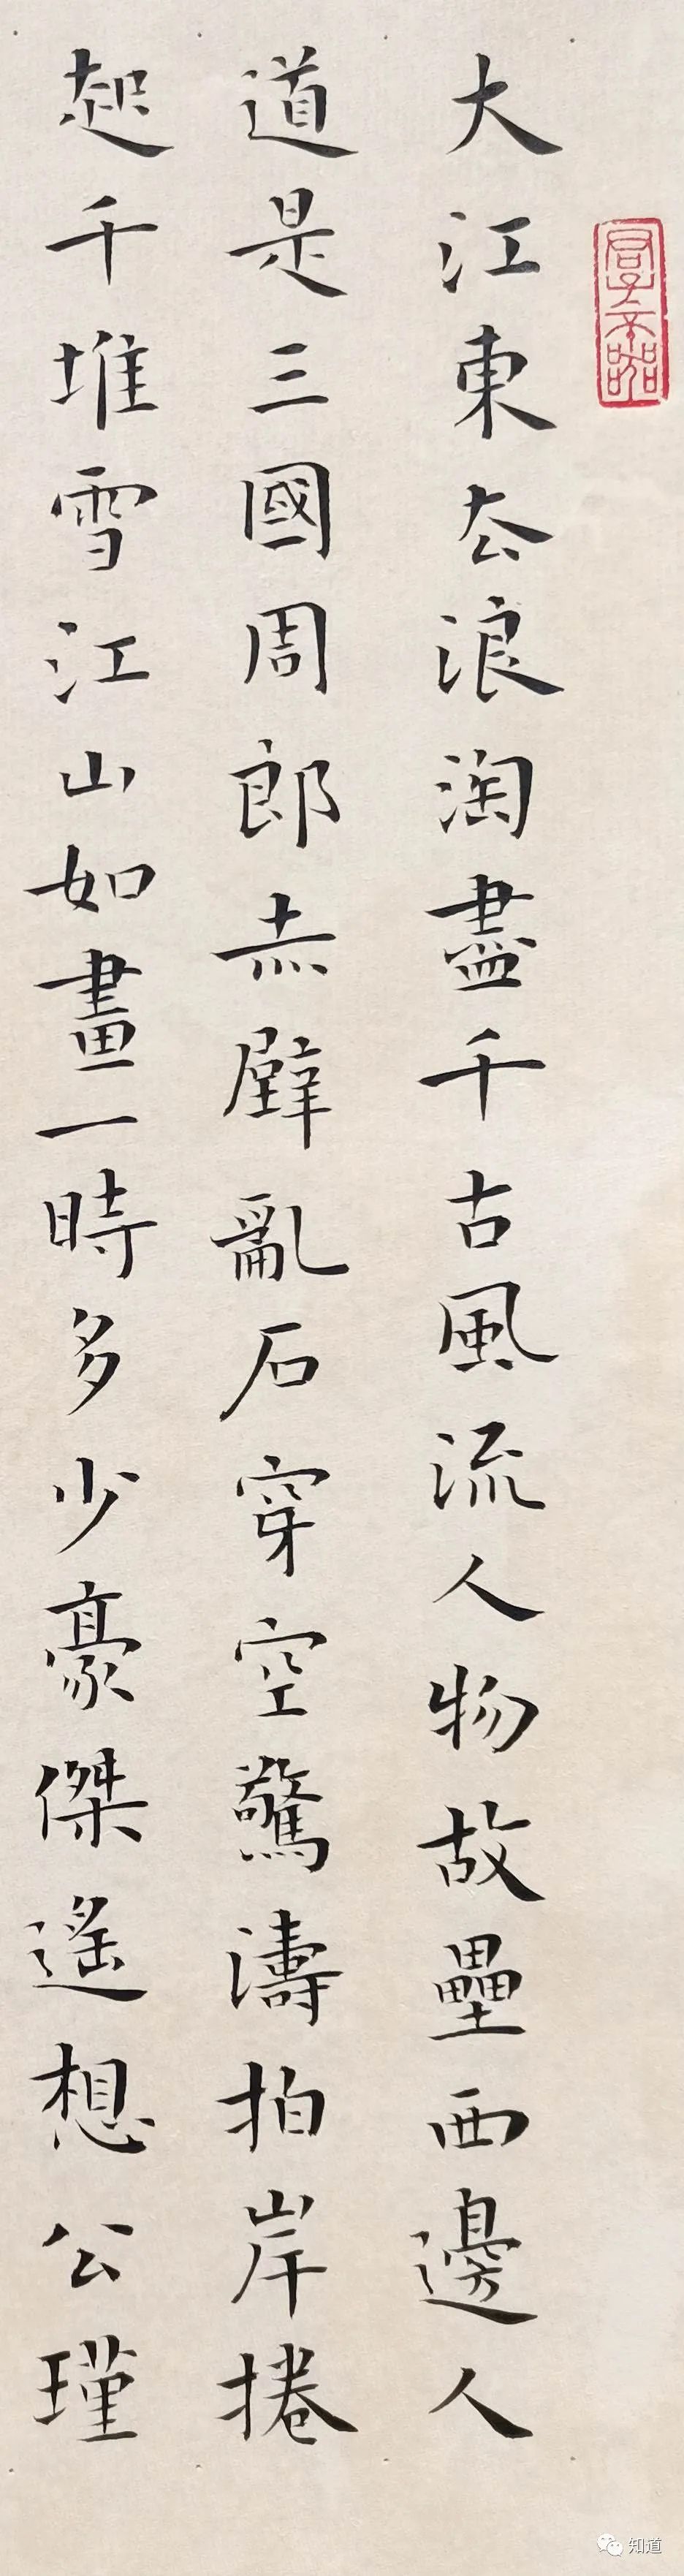 大江東去浪淘盡千古風流人物故壘西邊人
道是三國周郎赤壁亂石穿空驚濤拍岸捲
起千堆雪江山如畫一時多少豪傑遙想公瑾
知道